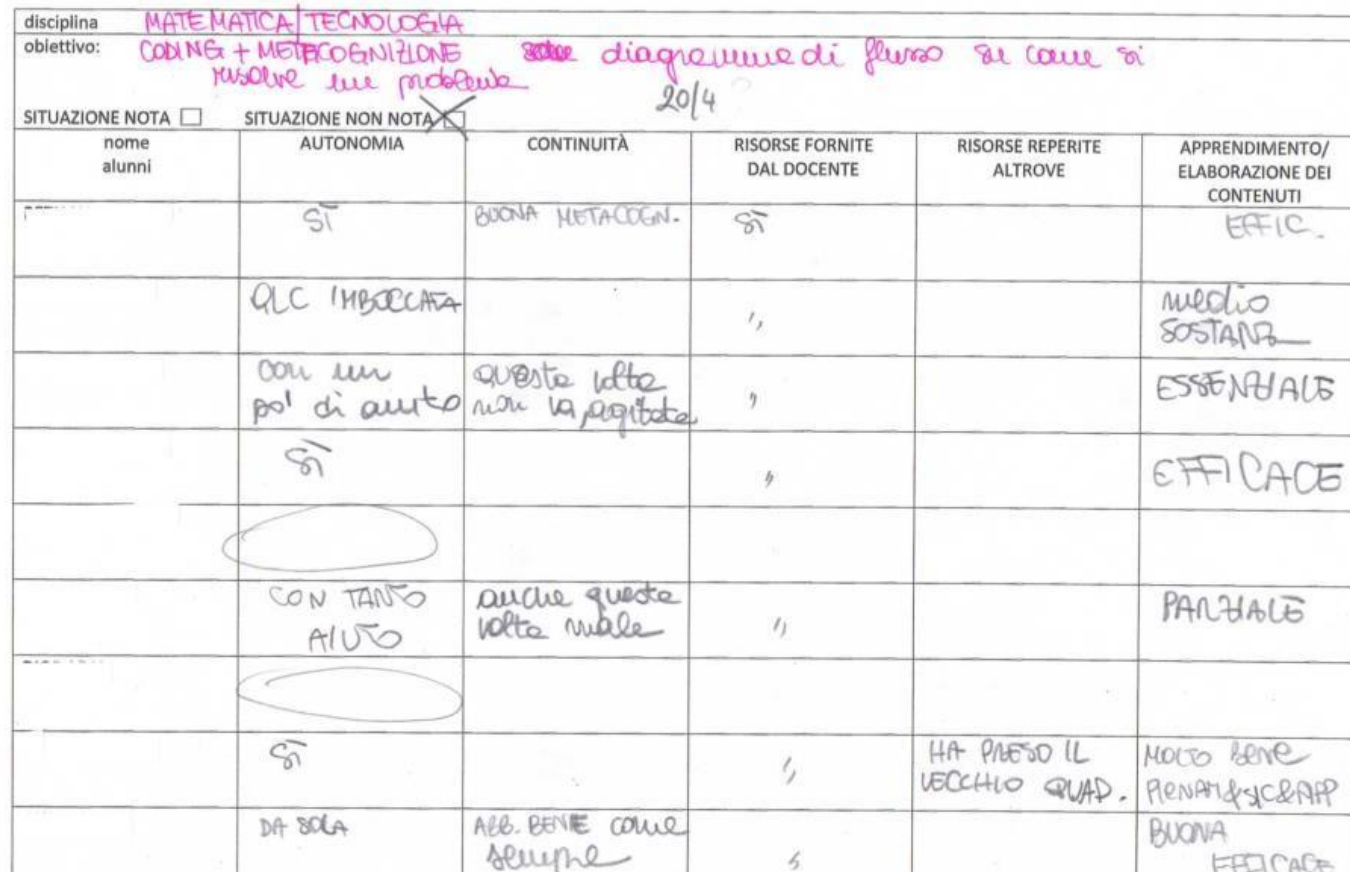 disciplina MATEMATICA/TECNOLOGIA
obiettivo: CODING + METACOGNIZIONE diagramma di flusso su come si
risolve un problema
20/4
SITUAZIONE NOTA SITUAZIONE NON NOTA
nome alunni
AUTONOMIA
CONTINUITÀ
RISORSE FORNITE DAL DOCENTE
RISORSE REPERITE ALTROVE
APPRENDIMENTO/ ELABORAZIONE DEI CONTENUTI
SÌ
BUONA METACOGN.
SÌ
EFFIC.
QLC IMBOCCATA
"
medio
SOSTANZ
con un
po' di aiuto
questa volta
non va agitata
"
ESSENZIALE
SÌ
"
EFFICACE
CON TANTO
AIUTO
anche questa
volta male
"
PARZIALE
SÌ
"
HA PRESO IL
VECCHIO QUAD.
MOLTO BENE
DA SOLA
ABB. BENE come
sempre
"
BUONA
EFFICACE